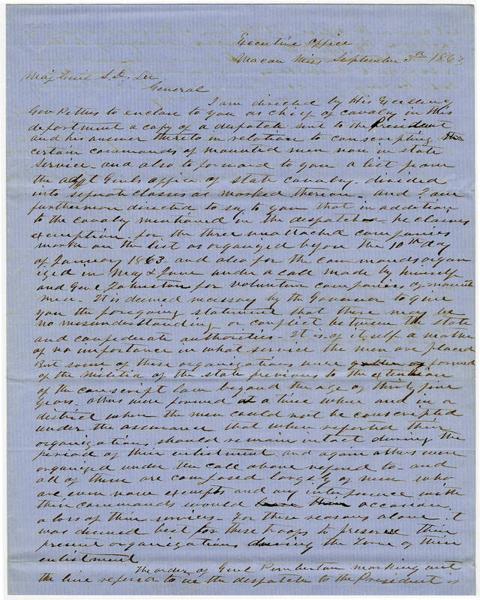 Executive Office
Macon Miss September 1863
Maj Genl S. D. Lee
General
I am directed by His Excellency
Gov Pettus to enclose to you as chief of cavalry in this
department a copy of a dispatch sent to the President
and his answer thereto in relation to conscripting the
certain commands of mounted men now in state
service and also to forward to you a list from
the Adjt Genls office of state cavalry divided
into separate classes as marked thereon. And I am
furthermore directed to say to you that in addition
to the cavalry mentioned in the dispatch he claims
exemption for the three unattached companies
marked on the list as organized before the 10th day
of January 1863 and also for the commands organ
ized in May & June under a call made by himself
and Genl Johnston for volunteer companies of mounted
men. It is deemed necessary by the Governor to give
you the foregoing statement that there may be
no misunderstanding or conflict between the state
and confederate authorities. It is of itself a matter
of no importance in what service the men are placed
but some of these organizations were formed
of the Militia of the state previous to the extention
of the conscript law beyond the age of thirty five
years others were formed at a time when and in a
district when the men could not be conscripted
under the assurance that when reported their
organizations should remain intact during the
period of their enlistment and again others were
organized under the call above refered to and
all of them are composed largely of men who
are even now exempts and any interference with
their commands would occasion
a loss of their services for these reasons alone it
was deemed best for these troops to preserve their
present organizations during the term of their
enlistment
The order of Genl Pemberton marking out
the line refered to in the dispatch to the President is